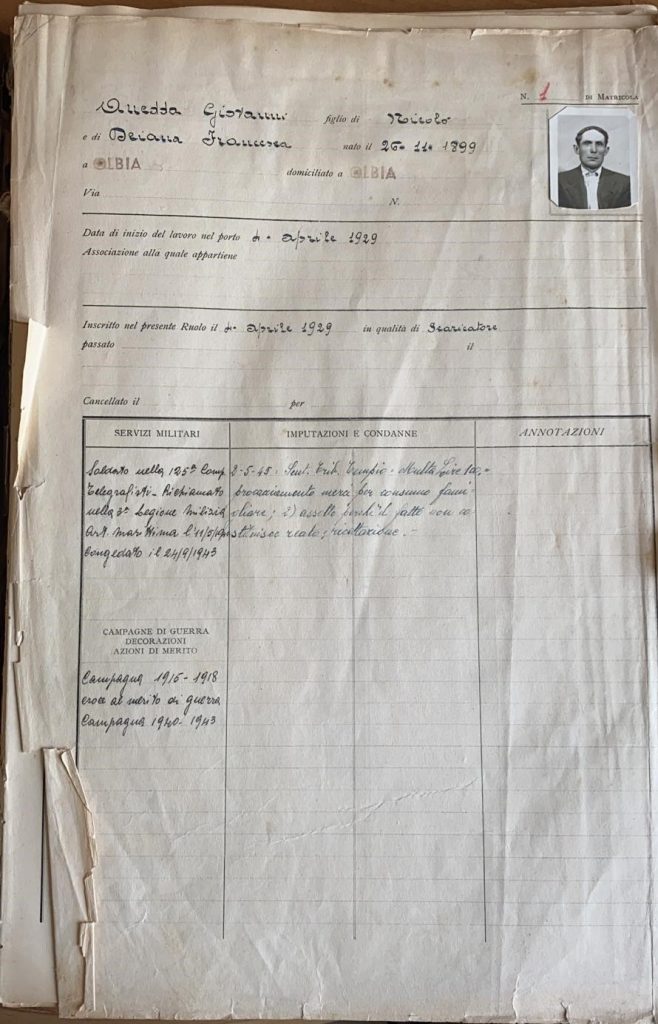 N. 1 DI MATRICOLA
Giovanni figlio di Nicolò
e di Deiana Francesca nato il 26-11-1899
a OLBIA domiciliato a OLBIA
Via N.
Data di inizio del lavoro nel porto 4- aprile 1929
Associazione alla quale appartiene
Inscritto nel presente Ruolo il 4- aprile 1929 in qualità di Scaricatore
passato il
Cancellato il per
SERVIZI MILITARI IMPUTAZIONI E CONDANNE ANNOTAZIONI
Soldato nella 125ª Comp
Telegrafisti - Richiamato
nella 3ª Legione Milizia
Art. Marittima l'11/5/
Congedato il 24/9/1943
2-5-45: Sent. Trib. Tempio - Multa Lire 100,-
procacciamento merci per consumo fami-
liare; 2) assolto perchè il fatto non co-
stituisce reato; ricettazione.-
CAMPAGNE DI GUERRA
DECORAZIONI
AZIONI DI MERITO
Campagna 1915-1918
croce al merito di guerra
Campagna 1940-1943